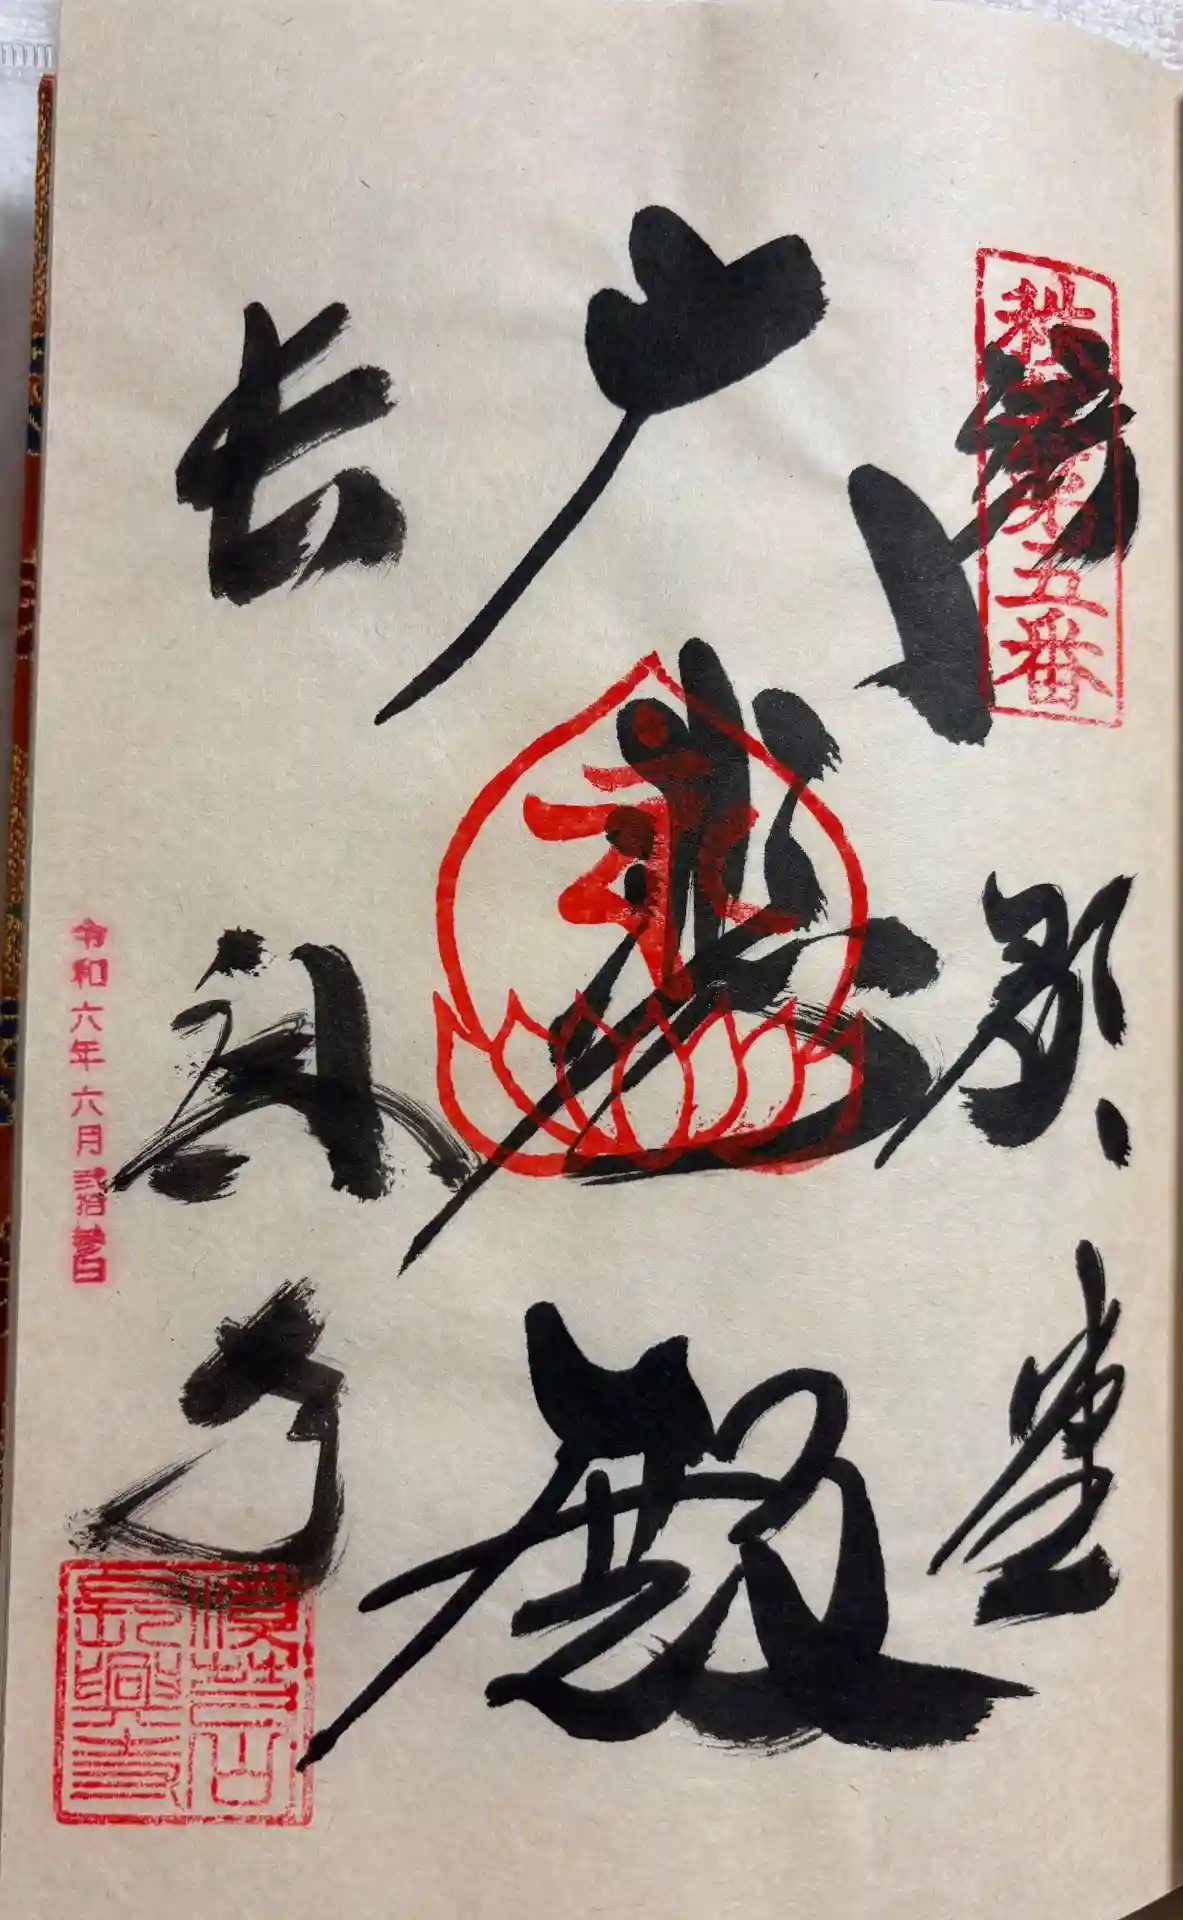 秩父第五番
語歌堂
大悲殿
長興寺
令和六年六月弐拾参日
長興寺